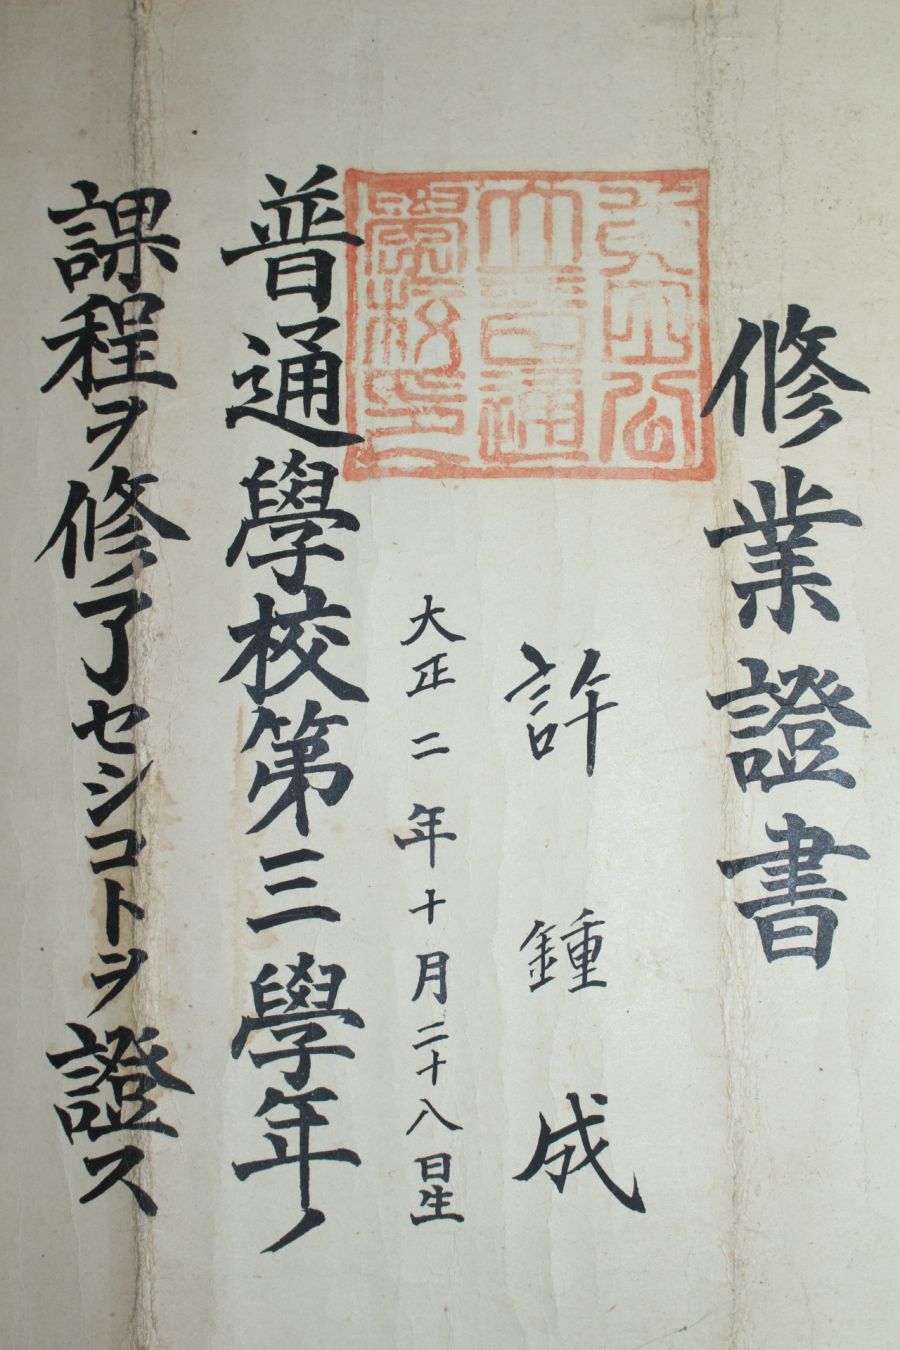 修業證書
許鍾成
大正二年十月二十八日生
普通學校第三學年ノ
課程ヲ修了セシコトヲ證ス
公立普通
學校印